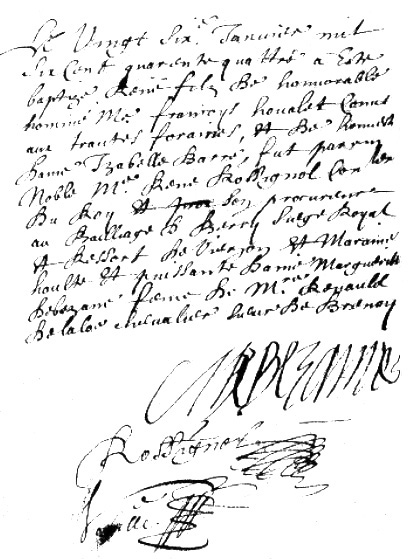 Le Vingt Six.e Janvier mil
Six Cent quarente quattre a Este
baptize René filz de honnorable
homme Me françoys houalet Commis
aux traites foraines, Et de honneste
dame Izabelle Barré, fut parrin
Noble Me René Rossignol Con.er
du Roy Et son procureur
au Bailliage de Berry Siege Royal
Et Ressort de Vierzon Et Maraine
haulte Et puissante dame Marguerite
feme de Mre Renauld
de la loe chevalier sieur de Brenay
Rossignol